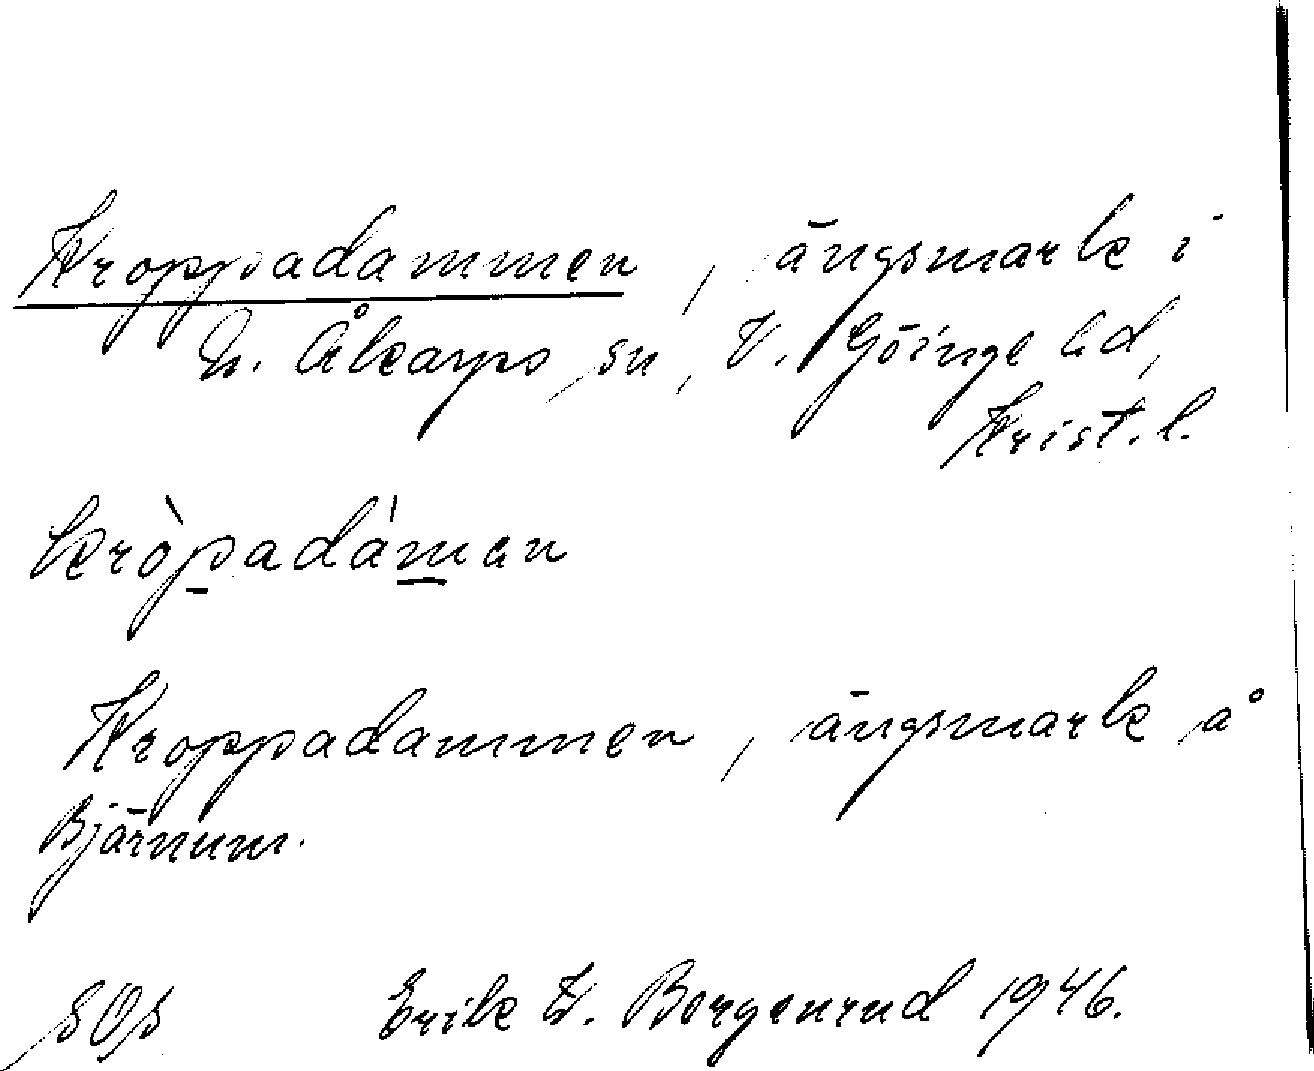 Kroppadammen, ängsmark i
N. Åkarps sn, V. Göinge hd,
Krist. l.
kròpadámen
Kroppadammen, ängsmark å
Bjärnum.
SOS Erik W. Borgenrud 1946.